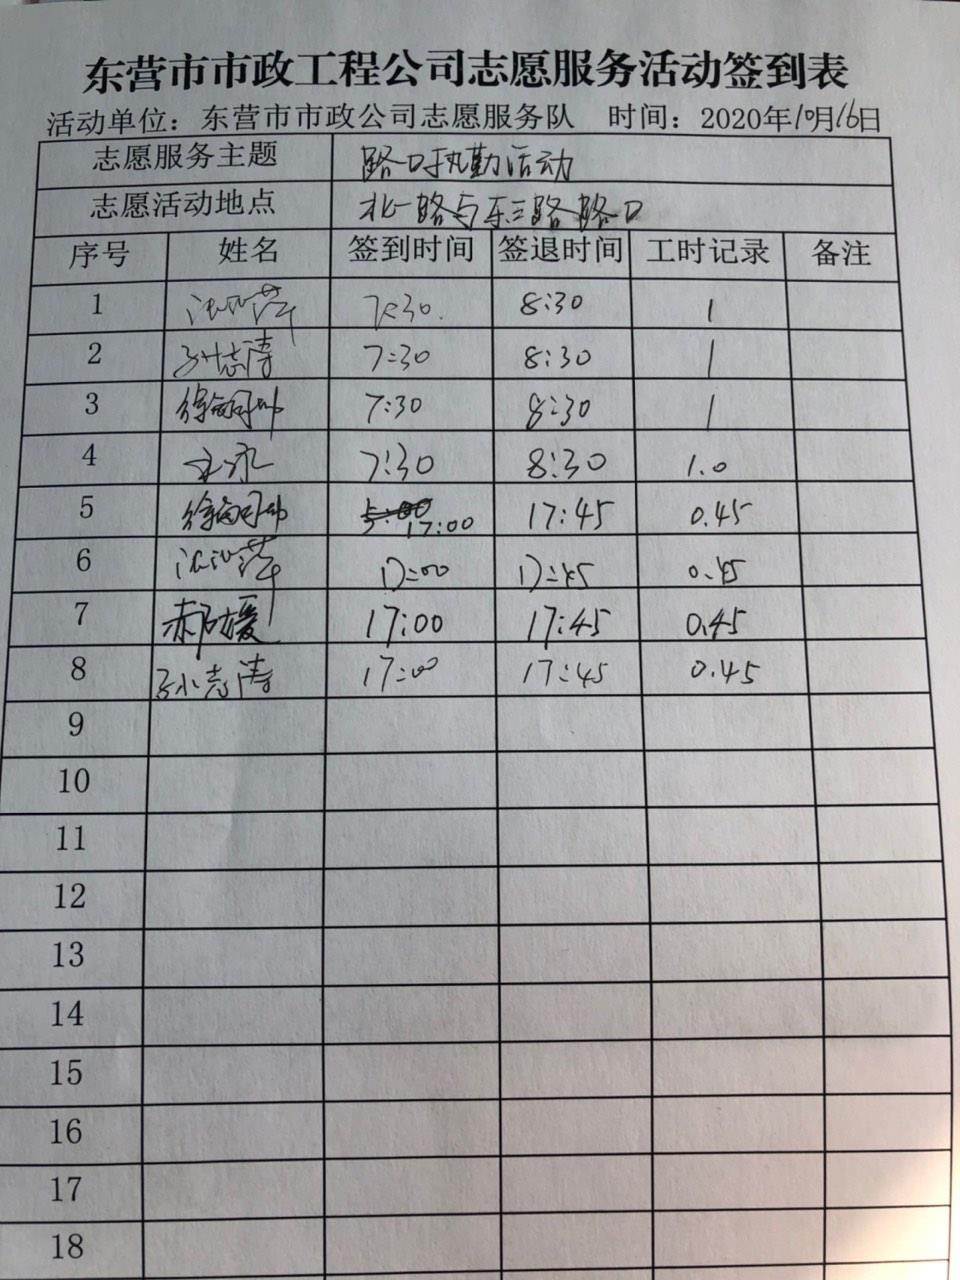 东营市市政工程公司志愿服务活动签到表
活动单位：东营市市政公司志愿服务队 时间：2020年10月16日
志愿服务主题 路口执勤活动
志愿活动地点 北一路与东三路路口
序号 姓名 签到时间 签退时间 工时记录 备注
1 7:30. 8:30 1
2 孙志涛 7:30 8:30 1
3 7:30 8:30 1
4 7:30 8:30 1.0
5 17:00 17:45 0.45
6 17:00 17:45 0.45
7 郝媛 17:00 17:45 0.45
8 孙志涛 17:00 17:45 0.45
9
10
11
12
13
14
15
16
17
18